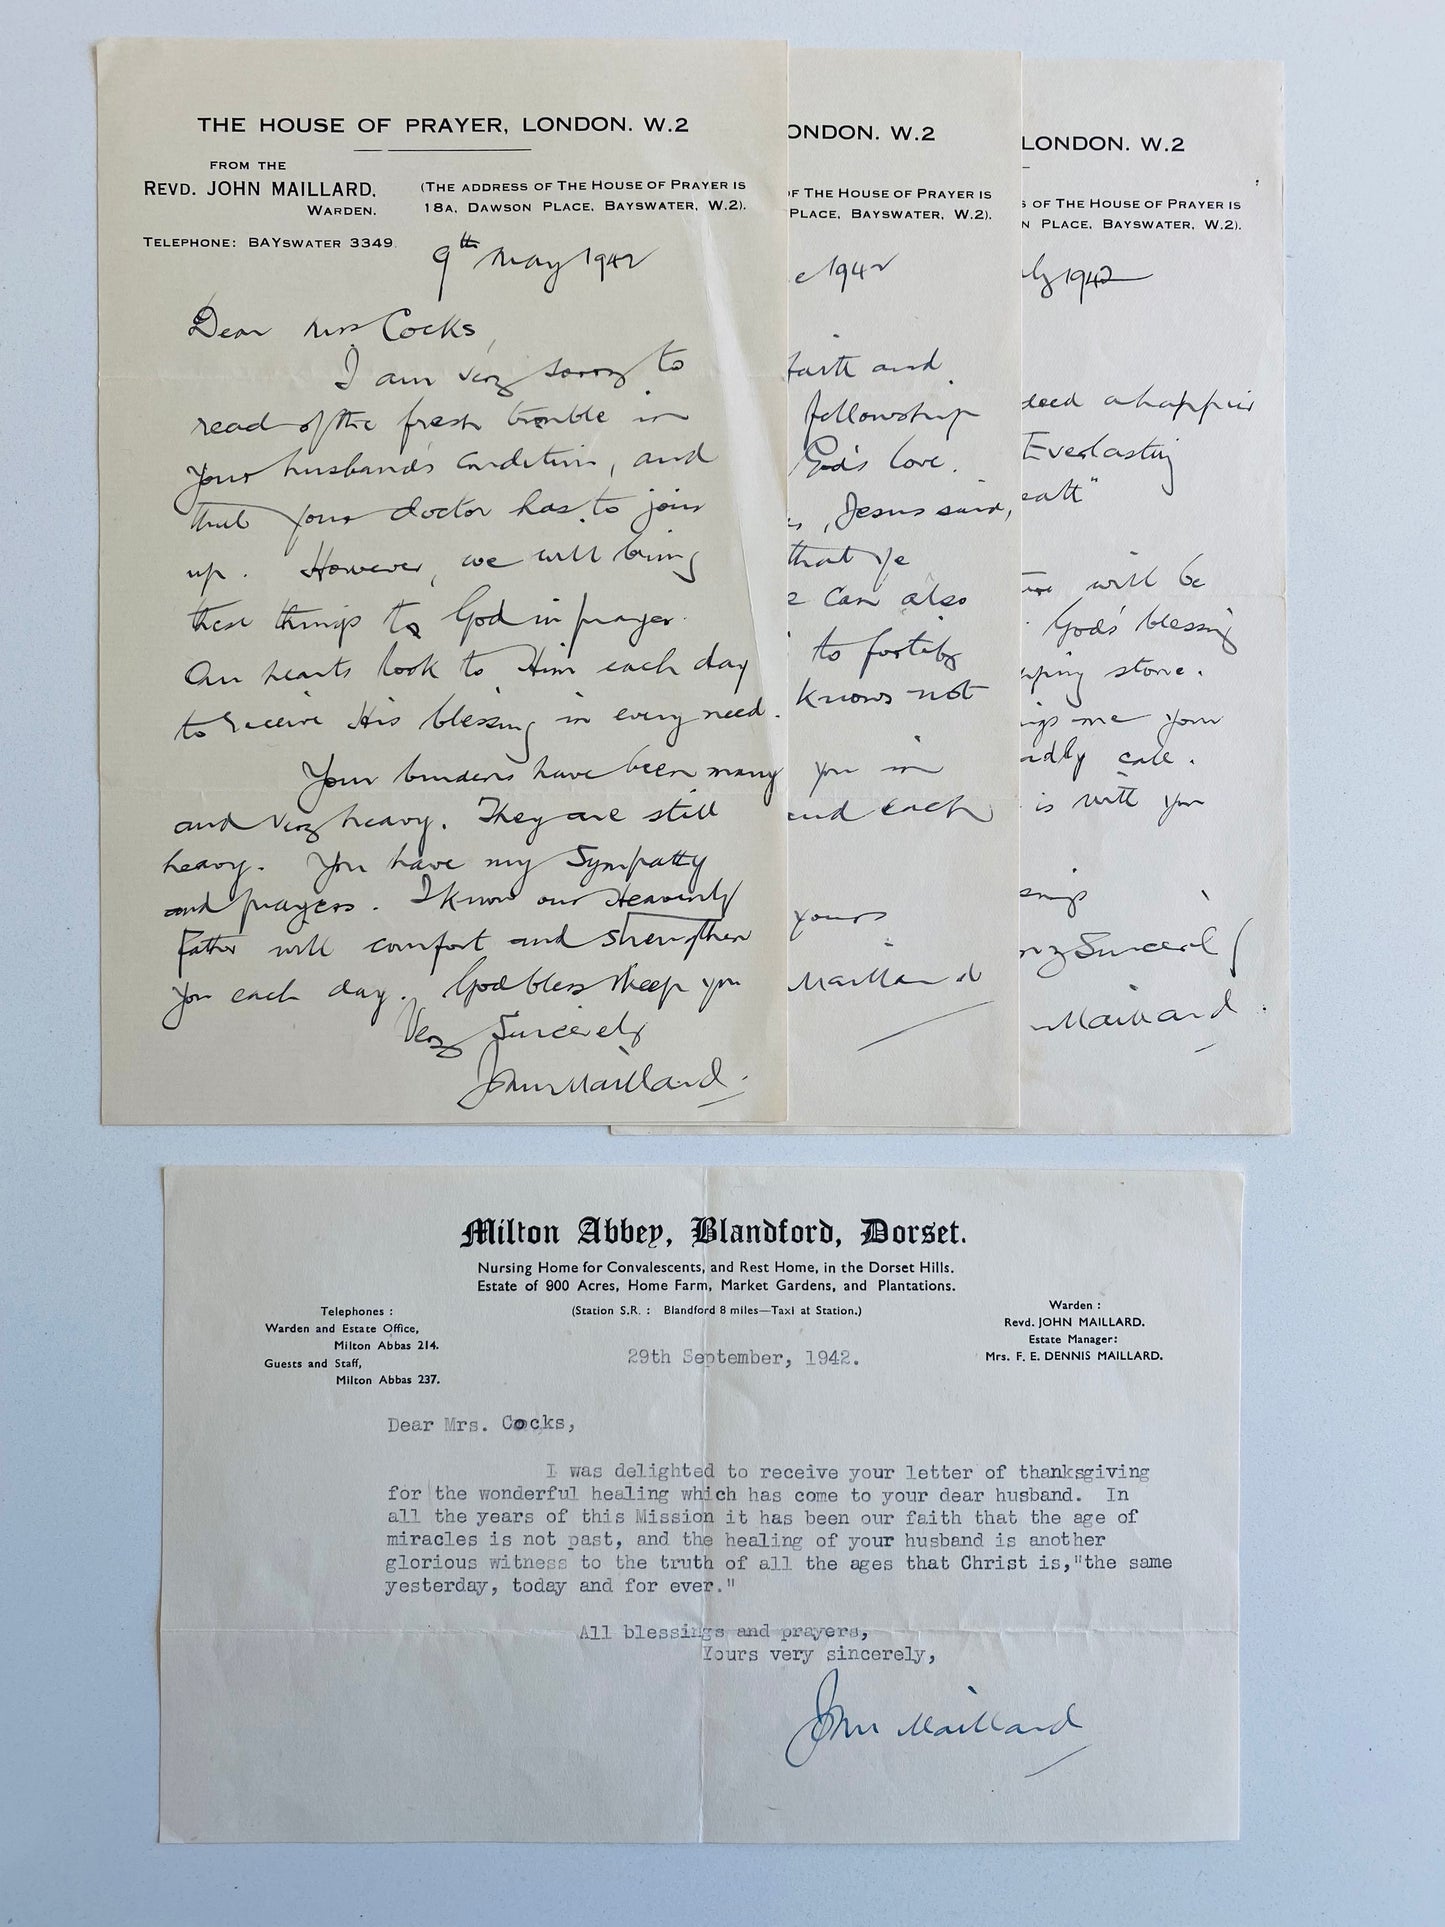 THE HOUSE OF PRAYER, LONDON. W.2
FROM THE
REVD. JOHN MAILLARD,
WARDEN.
(THE ADDRESS OF THE HOUSE OF PRAYER IS
18A, DAWSON PLACE, BAYSWATER, W.2).
TELEPHONE: BAYSWATER 3349
9th May 1942
Dear Mrs Cocks,
I am very sorry to
read of the fresh trouble in
your husband's condition, and
that your doctor has to join
up. However, we will bring
these things to God in prayer.
Our hearts look to Him each day
to receive His blessing in every need.
Your burdens have been many
and very heavy. They are still
heavy. You have my sympathy
and prayers. I know our Heavenly
Father will comfort and strengthen
you each day. God bless & keep you
Very Sincerely
John Maillard.
ONDON. W.2
F THE HOUSE OF PRAYER IS
PLACE, BAYSWATER, W.2).
e 1942
faith and
fellowship
God's love.
, Jesus said,
that ye
can also
to fortify
knows not
you in
and each
yours
Maillard
LONDON. W.2
S OF THE HOUSE OF PRAYER IS
N PLACE, BAYSWATER, W.2).
ly 1942
deed a happier
Everlasting
eath"
will be
God's blessing
pping stone.
ngs me your
adly call.
is with you
ssings
Sincerely
Maillard.
Milton Abbey, Blandford, Dorset.
Nursing Home for Convalescents, and Rest Home, in the Dorset Hills.
Estate of 900 Acres, Home Farm, Market Gardens, and Plantations.
(Station S.R. : Blandford 8 miles—Taxi at Station.)
Telephones :
Warden and Estate Office,
Milton Abbas 214.
Guests and Staff,
Milton Abbas 237.
Warden :
Revd. JOHN MAILLARD.
Estate Manager:
Mrs. F. E. DENNIS MAILLARD.
29th September, 1942.
Dear Mrs. Cocks,
I was delighted to receive your letter of thanksgiving
for the wonderful healing which has come to your dear husband. In
all the years of this Mission it has been our faith that the age of
miracles is not past, and the healing of your husband is another
glorious witness to the truth of all the ages that Christ is,"the same
yesterday, today and for ever."
All blessings and prayers,
Yours very sincerely,
John Maillard